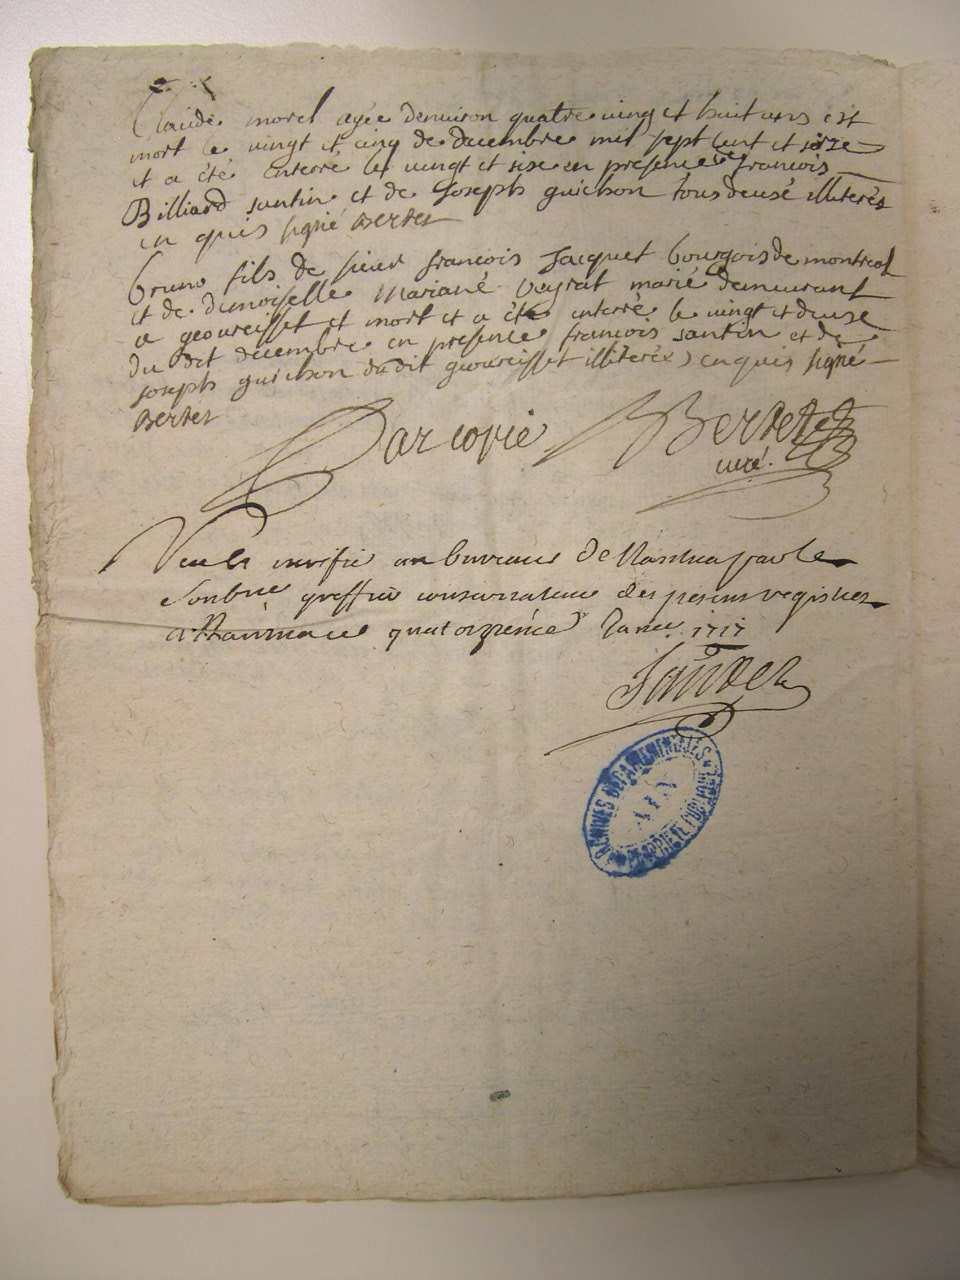 Claude morel agée denviron quatre vingt et huit ans est
mort le vingt et cinq de decembre mil sept cent et seize
et a été enterré le vingt et sise en presence de francois
Billiard santin et de Joseph guichon tous deuse illiterés
en quis signé Berdet
bruno fils de sieur francois Jacquet bourgois de montreal
et de dmoiselle Mariane veyrat marié demeurant
a geoureisset et mort et a été enterré le vingt et deuse
du dit decembre en presence francois santin et de
joseph guichon dudit geoureisset illiterés enquis signé
Berdet
Par copie Berdet
curé.
Veu et verifie au bureau de Nantua par le
soubne greffier conservateur des presens registres
a Nantua ce quatorzieme Janv. 1717
ARCHIVES DÉPARTEMENTALES
AIN
PROPRIÉTÉ PUBLIQUE